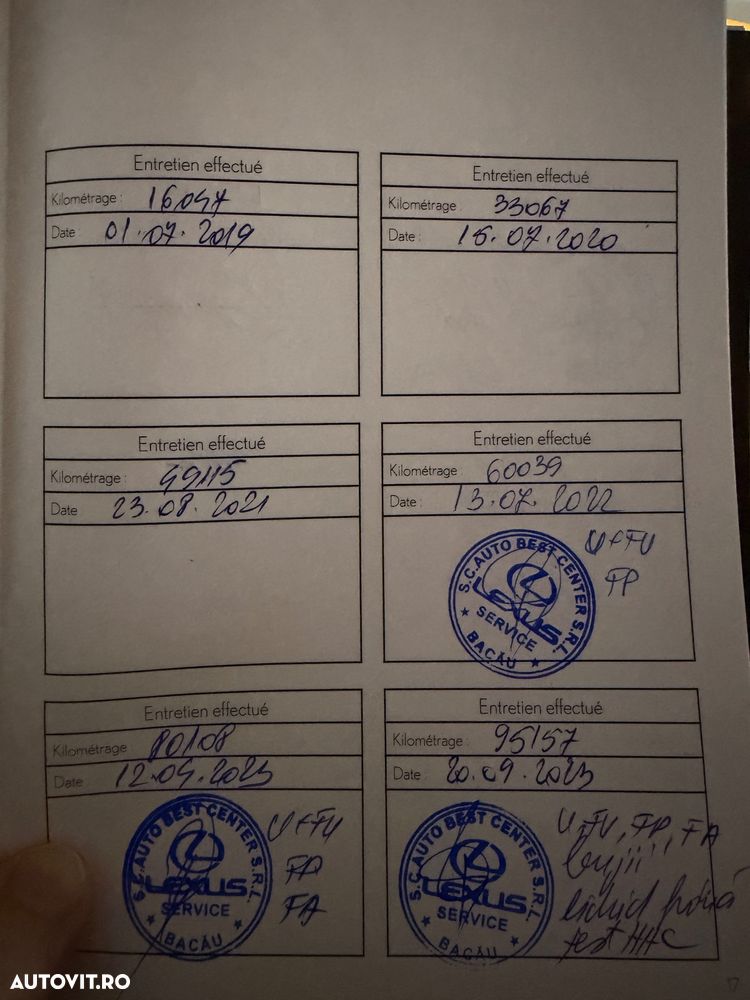 Entretien effectué
Kilométrage : 16047
Date 01.07.2019
Entretien effectué
Kilométrage 33067
Date : 15.07.2020
Entretien effectué
Kilométrage : 49115
Date 23.08.2021
Entretien effectué
Kilométrage 60039
Date : 13.07.2022
U+FU
FP
S.C. AUTO BEST CENTER S.R.L.
LEXUS
SERVICE
BACĂU
Entretien effectué
Kilométrage 80108
Date 12.04.2023
U+FU
FP
FA
S.C. AUTO BEST CENTER S.R.L.
LEXUS
SERVICE
BACĂU
Entretien effectué
Kilométrage : 95157
Date : 20.09.2023
U, FU, FP, FA
bujii,
lichid frână
test HHC
S.C. AUTO BEST CENTER S.R.L.
LEXUS
SERVICE
BACĂU
17
AUTOVIT.RO